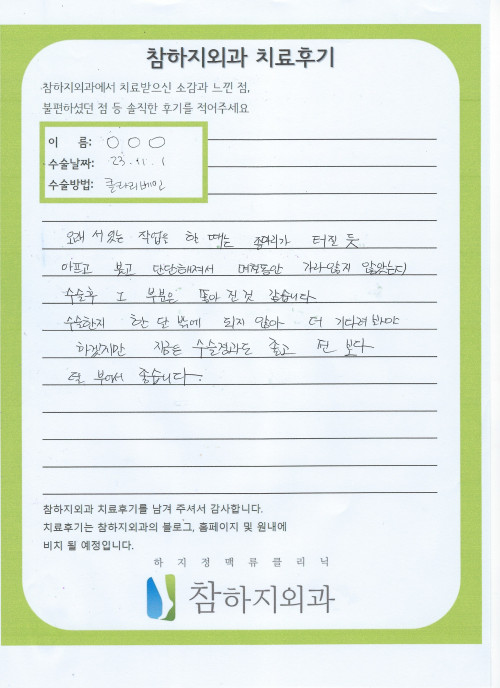 참하지외과 치료후기
참하지외과에서 치료받으신 소감과 느낀 점,
불편하셨던 점 등 솔직한 후기를 적어주세요
이 름: ○ ○ ○
수술날짜: 23.11.1
수술방법: 클라리베인
오래 서있는 작업을 한 때는 종아리가 터질 듯
아프고 붓고 단단해져서 며칠동안 가라앉지 않았는데
수술후 그 부분은 좋아 진것 같습니다.
수술한지 한 달 밖에 되지 않아 더 기다려 봐야
하겠지만 지금은 수술결과도 좋고 전 보다
덜 부어서 좋습니다.
참하지외과 치료후기를 남겨 주셔서 감사합니다.
치료후기는 참하지외과의 블로그, 홈페이지 및 원내에
비치 될 예정입니다.
하 지 정 맥 류 클 리 닉
참하지외과